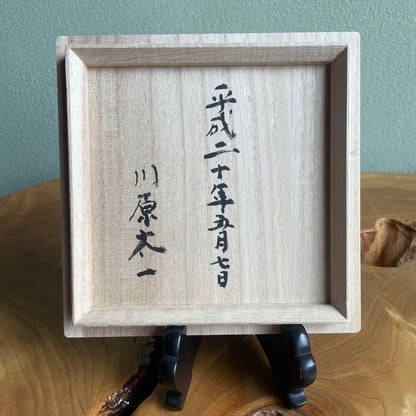 平成二十年五月七日
川原太一